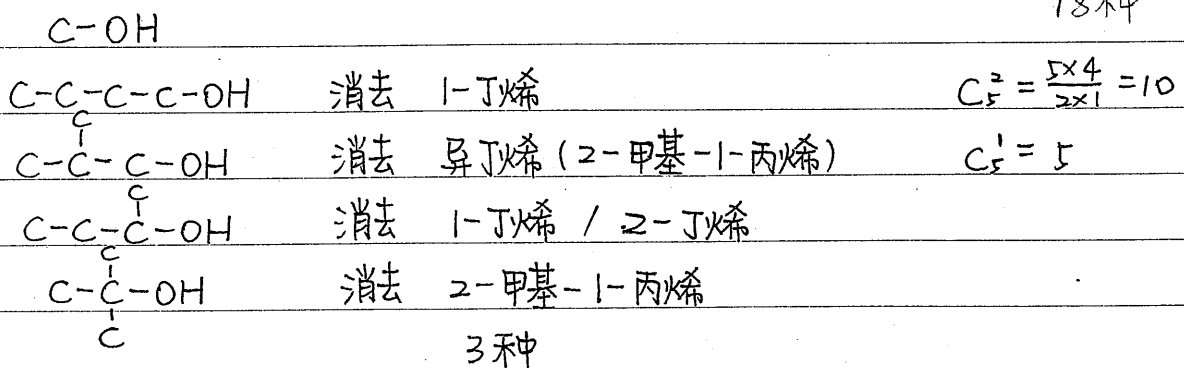 18种
C-OH
C-C-C-C-OH 消去 1-丁烯 C₅² = 5×4/2×1 = 10
C
C-C-C-OH 消去 异丁烯(2-甲基-1-丙烯) C₅¹ = 5
C
C-C-C-OH 消去 1-丁烯 / 2-丁烯
C
C-C-OH 消去 2-甲基-1-丙烯
C
3种